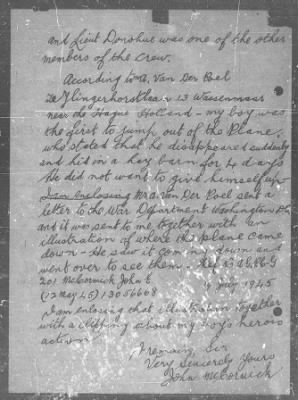 and Lieut Donohue was one of the other
members of the crew.
According to A. Van Der Poel
13 Wassenaar
near de Hague Holland - my boy was
the first to jump out of the Plane,
who stated that he disappeared suddenly
and hid in a hay barn for 4 days
He did not want to give himself up
I am enclosing Mr A. Van Der Poel sent a
letter to the War Department Washington
and it was sent to me together with an
illustration of where the plane came
down - He saw it coming down and
went over to see them. Ref.
201 McCormick John E
(12 May 45) 13056608 9 July 1945
I am enlosing that illustration together
with a clipping about my boys heroic
action
I remain, Sir
Very Sincerely Yours
John McCormick